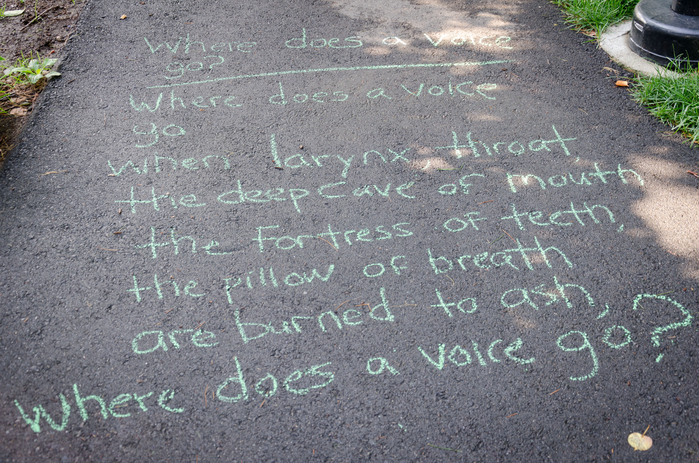 Where does a voice
go?
Where does a voice
go
When larynx throat,
the deep cave of mouth,
the fortress of teeth,
the pillow of breath
are burned to ash,
Where does a voice go?